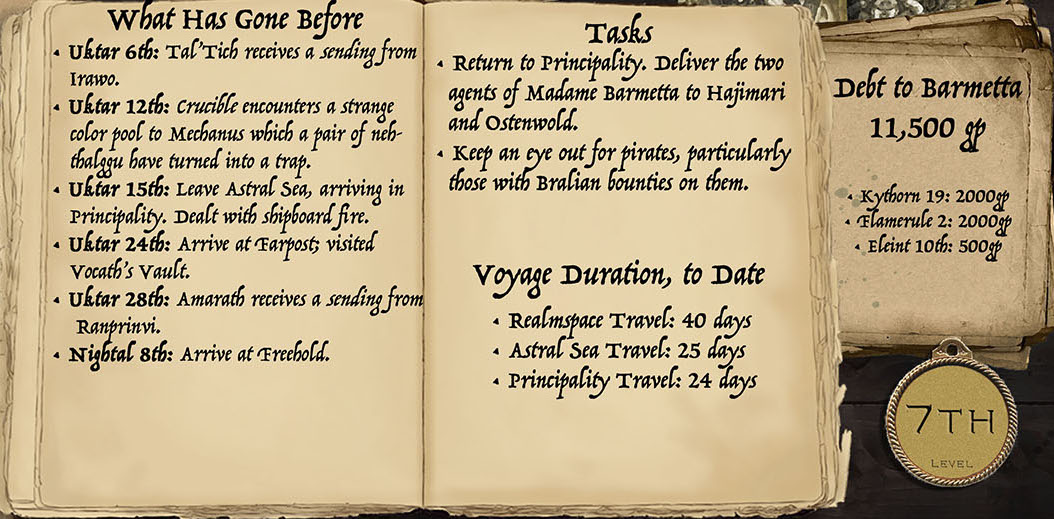 What Has Gone Before
Uktar 6th: Tal'Tich receives a sending from
Irawo.
Uktar 12th: Crucible encounters a strange
color pool to Mechanus which a pair of neh-
thalggu have turned into a trap.
Uktar 15th: Leave Astral Sea, arriving in
Principality. Dealt with shipboard fire.
Uktar 24th: Arrive at Farpost; visited
Vocath's Vault.
Uktar 28th: Amarath receives a sending from
Ranprinvi.
Nightal 8th: Arrive at Freehold.
Tasks
Return to Principality. Deliver the two
agents of Madame Barmetta to Hajimari
and Ostenwold.
Keep an eye out for pirates, particularly
those with Bralian bounties on them.
Voyage Duration, to Date
Realmspace Travel: 40 days
Astral Sea Travel: 25 days
Principality Travel: 24 days
Debt to Barmetta
11,500 gp
Kythorn 19: 2000gp
Flamerule 2: 2000gp
Eleint 10th: 500gp
7TH
LEVEL